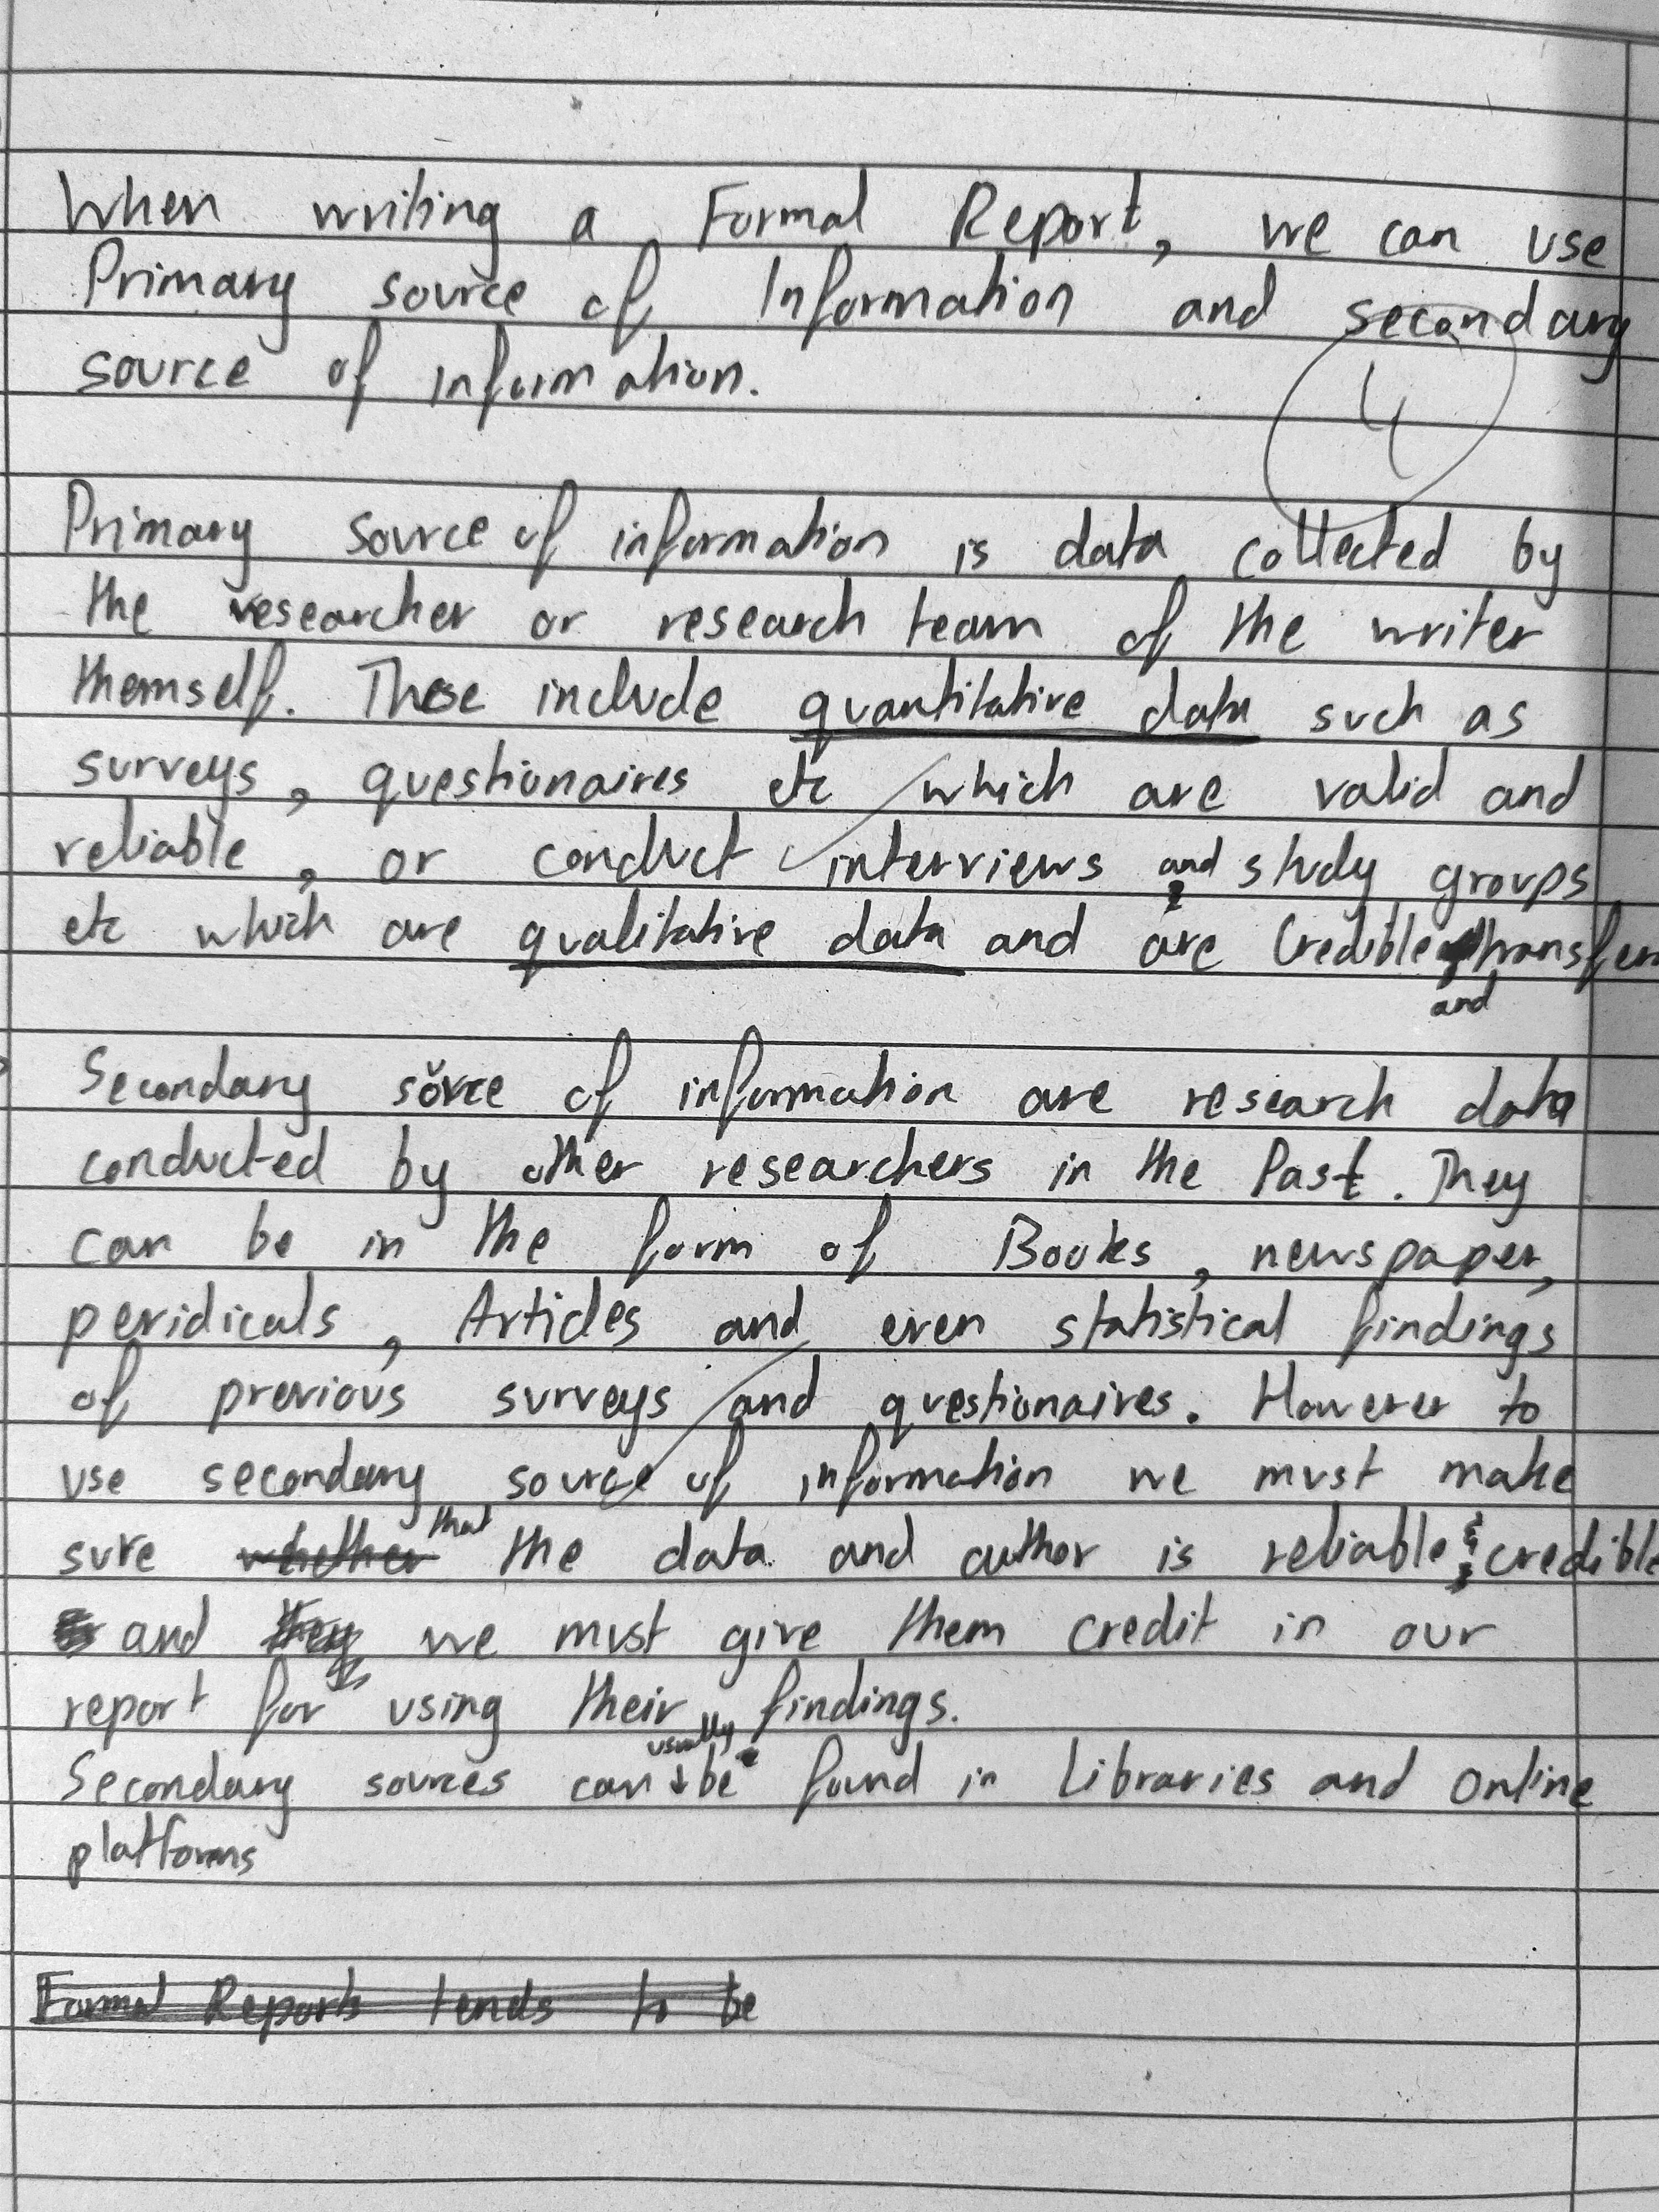 When writing a Formal Report, we can use
Primary source of Information and secondary
source of information.
4
Primary source of information is data collected by
the researcher or research team of the writer
themself. These include quantitative data such as
surveys, questionaires etc which are valid and
reliable, or conduct interviews and study groups
etc which are qualitative data and are Credible and transfer
Secondary source of information are research data
conducted by other researchers in the Past. They
can be in the form of Books, newspaper,
peridicals, Articles and even statistical findings
of previous surveys and questionaires. However to
use secondary source of information we must make
sure whether that the data and author is reliable & credible
and they we must give them credit in our
report for using their findings.
Secondary sources can usually be found in Libraries and Online
platforms
Formal Reports tends to be